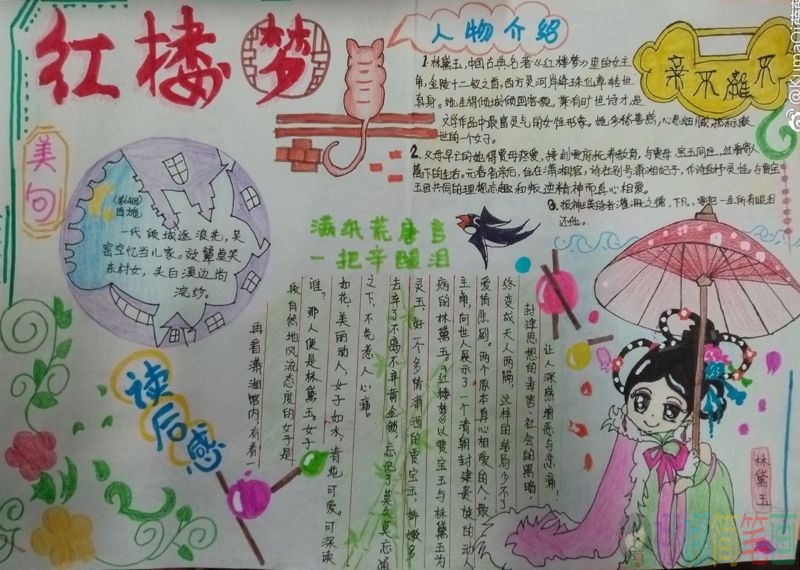 红楼梦
人物介绍
1.林黛玉,中国古典名著《红楼梦》里的女主
角,金陵十二钗之首,西方灵河岸绛珠仙草转世
真身。她生得倾城倾国容貌,兼有旷世诗才,是
文学作品中最富灵气的女性形象。她多愁善感,心思细腻,
世的一个女子。
2.父母早亡的她,得贾母疼爱,接到贾府抚养教育,与贾母宝玉同住,过着寄人
篱下的生活。元春省亲后,住在潇湘馆,诗社别号潇湘妃子,作诗
玉因共同的理想志趣和叛逆精神而真心相爱。
3.报神瑛侍者灌溉之德,下凡,要把一生所有眼泪
还他。
亲不
美句
(第64回)
西施
一代倾城逐浪花,吴
宫空忆当儿家。效颦莫笑
东村女,头白溪边尚
浣纱。
满纸荒唐言
一把辛酸泪
读后感
让人深感憎恶与悲痛!
封建思想的毒害、社会的黑暗
终变成天人两隔,这样的结局少不了
爱情悲剧。两个原本真心相爱的人,最
主角,向世人展示了一个清朝封建贵族的动人
病的林黛玉。《红楼梦》以贾宝玉与林黛玉为
灵玉,好一个多情潇洒的贾宝玉,娇嫩多
去辛了不离不弃黄金锁,忘记了莫失莫忘通
之下,不免惹人心痛。
如花,美丽动人,女子如水,清纯可爱。可深谈
谁?那人便是林黛玉,女子
段自然地风流态度的女子是
再看潇湘馆内,有着一
林黛玉
简笔画